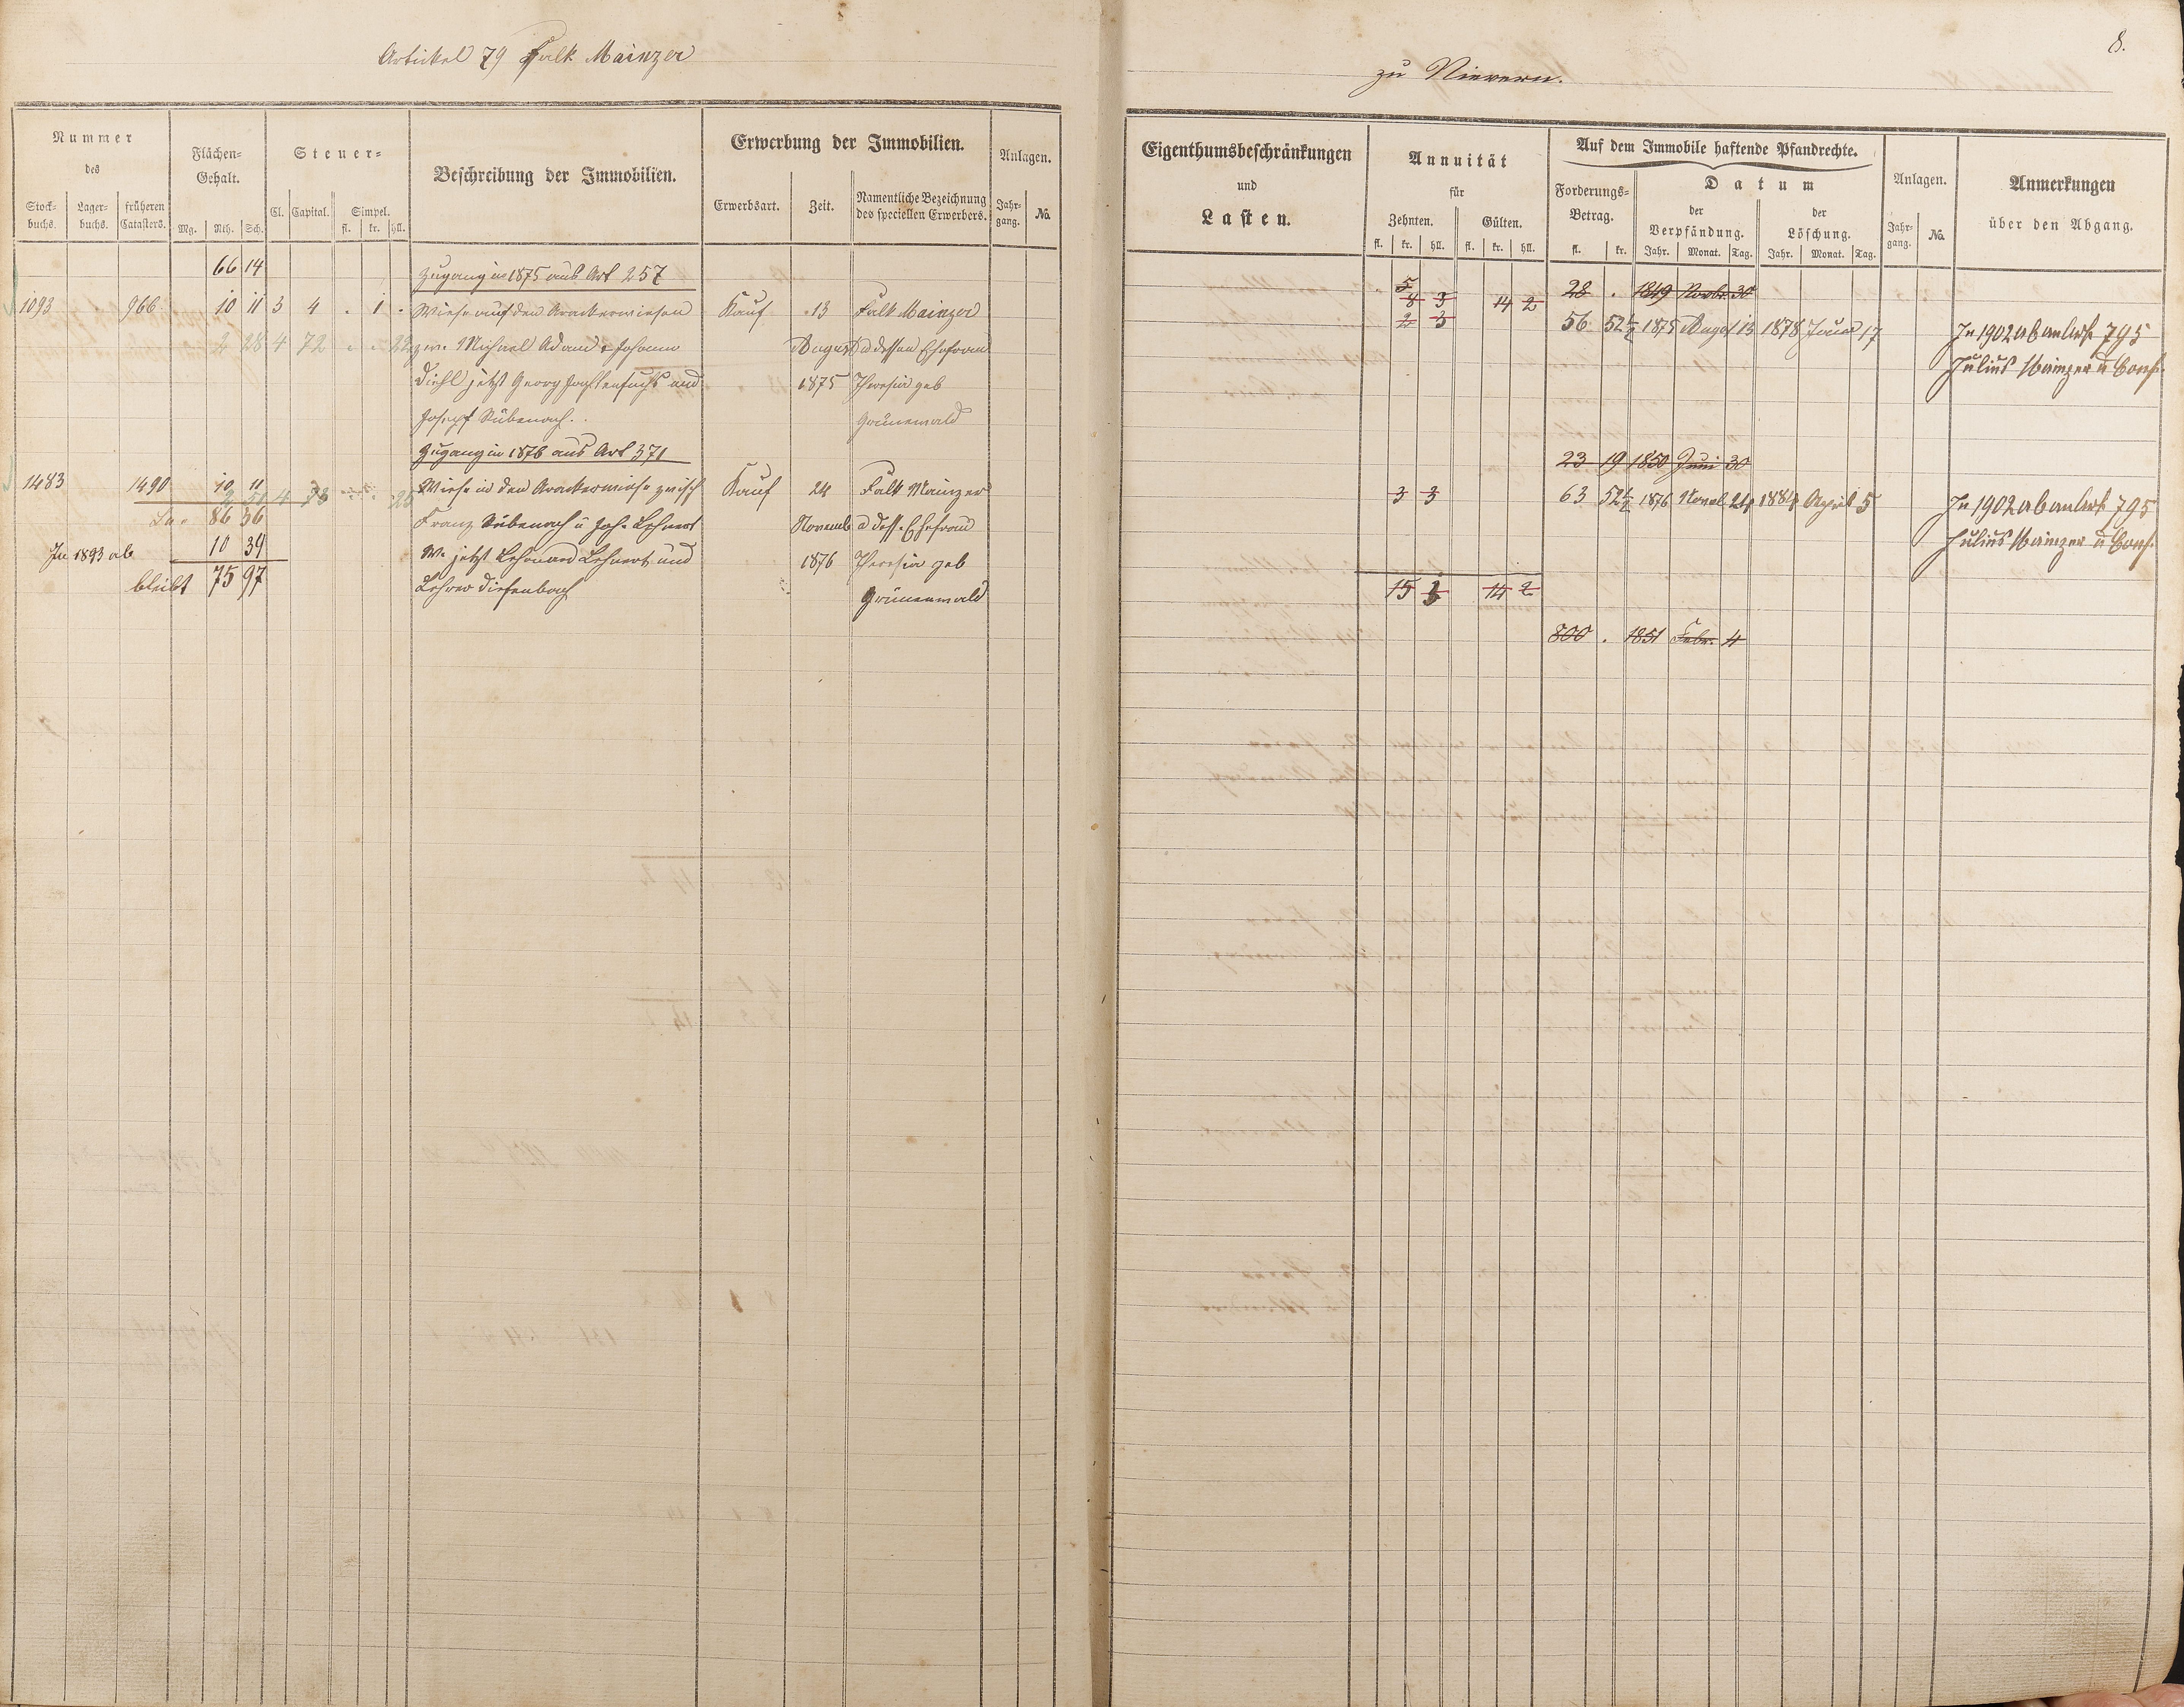 Artikel 79 Falk Mainzer
zu Nievern.
8.
Nummer
des
Stock-
buchs.
Lager-
buchs.
früheren
Catasters.
Flächen-
Gehalt.
Mg. Rth. Sch.
Steuer-
Cl. Capital. Simpel.
fl. kr. hll.
Beschreibung der Immobilien.
Erwerbung der Immobilien.
Erwerbsart. Zeit.
Namentliche Bezeichnung
des speciellen Erwerbers.
Anlagen.
Jahr-
gang. No.
66 14
Zugang in 1875 aus Art 257
1093 966 10 11 3 4 . 1 . Wiese auf den Arackerwiesen Kauf 13 Falk Mainzer
2 28 4 72 . . 22 zw. Michael Adam & Johann August u dessen Ehefrau
Diehl jetzt Georg und 1875 Theresia geb
Joseph Rübenach. Grünewald
Zugang in 1876 aus Art 371
1483 1490 10 11 Wiese in den Arackerwiese zwisch Kauf 24 Falk Mainzer
2 51 4 25
86 36 Franz Rübenach u Joh. Lehnert Novemb u dess. Ehefrau
In 1893 ab 10 39 We jetzt Lehnert und 1876 Theresia geb
bleibt 75 97 Lehrer Diefenbach Grünenwald
Eigenthumsbeschränkungen
und
Lasten.
Annuität
für
Zehnten. Gülten.
fl. kr. hll. fl. kr. hll.
Auf dem Immobile haftende Pfandrechte.
Forderungs-
Betrag.
fl. kr.
Datum
der
Verpfändung.
Jahr. Monat. Tag.
der
Löschung.
Jahr. Monat. Tag.
Anlagen.
Jahr-
gang. No.
Anmerkungen
über den Abgang.
5
8 3 14 2 28 . 1849 Novbr. 30
2 3 56 52½ 1875 August 13 1878 17 In 1902 ab an Art 795
Julius Mainzer u Cons.
23 19 1850 Juni 30
3 3 63 52½ 1876 Novb 24 1884 April 5 In 1902 ab an Art 795
Julius Mainzer u Cons.
15 14 2
800 . 1851 Febr. 4